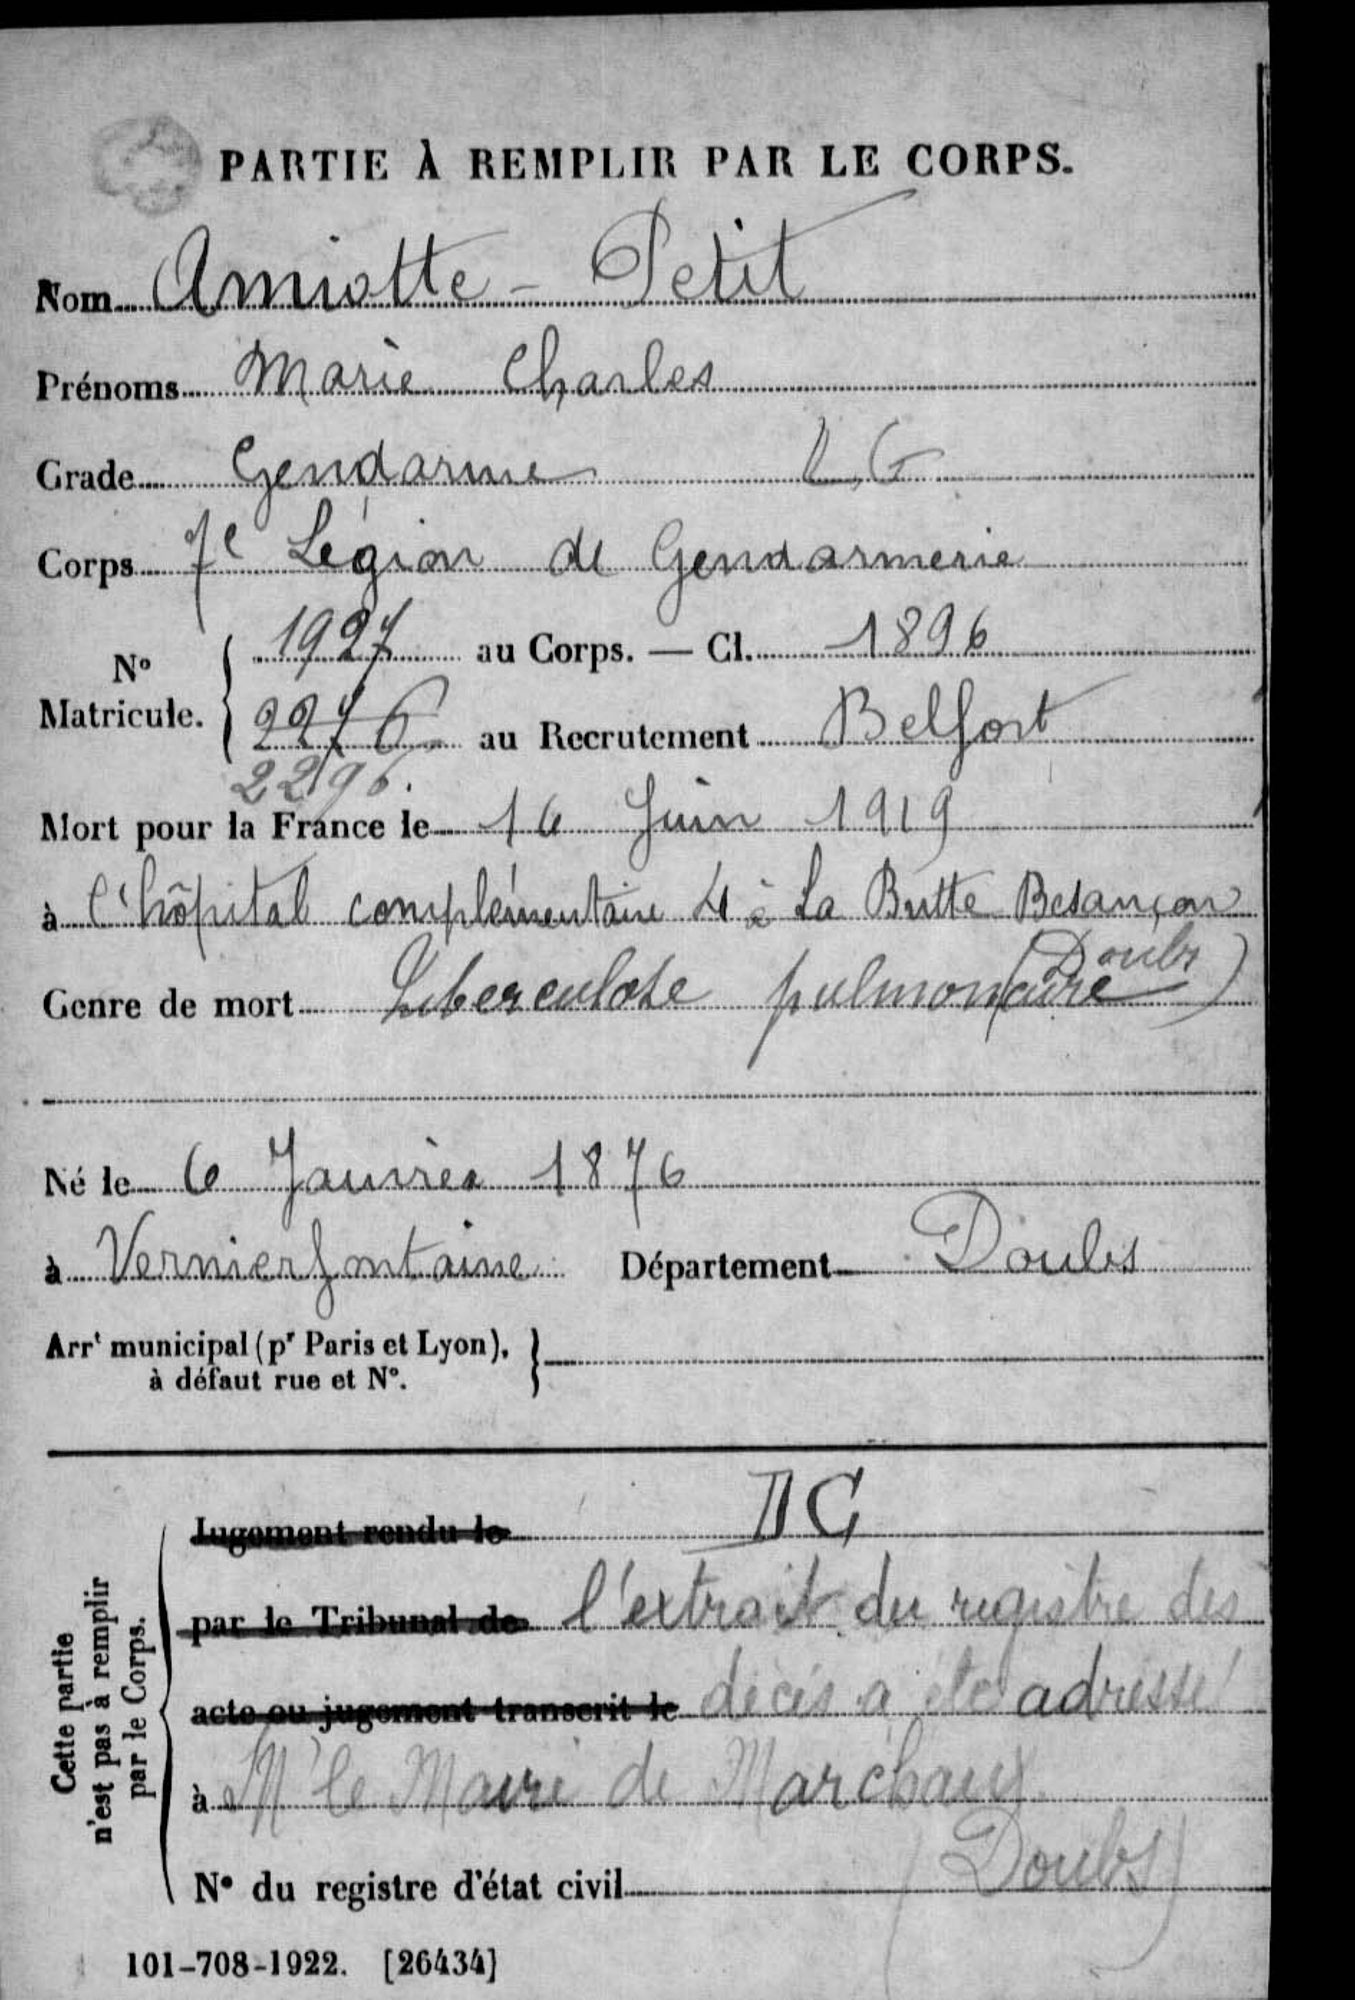 PARTIE À REMPLIR PAR LE CORPS.
Nom Amiotte - Petit
Prénoms Marie Charles
Grade Gendarme
Corps 7e Légion de Gendarmerie
N° Matricule. { 1927 au Corps. — Cl. 1896
2276 au Recrutement Belfort
2296.
Mort pour la France le 16 Juin 1919
à l'hôpital complémentaire 4 à La Butte Besançon
(Doubs)
Genre de mort Tuberculose pulmonaire
Né le 6 Janvier 1876
à Vernierfontaine Département Doubs
Arrt municipal (pr Paris et Lyon), }
à défaut rue et N°.
Cette partie
n'est pas à remplir
par le Corps.
Jugement rendu le
par le Tribunal de l'extrait du registre des
acte ou jugement transcrit le décès a été adressé
à Mr le Maire de Marchaux
(Doubs)
N° du registre d'état civil
101-708-1922. [26434]